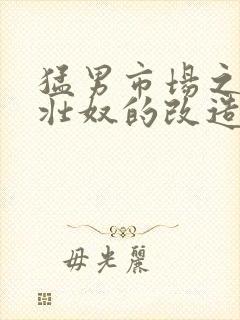 猛男市場之
壯奴的改造
毋光麗